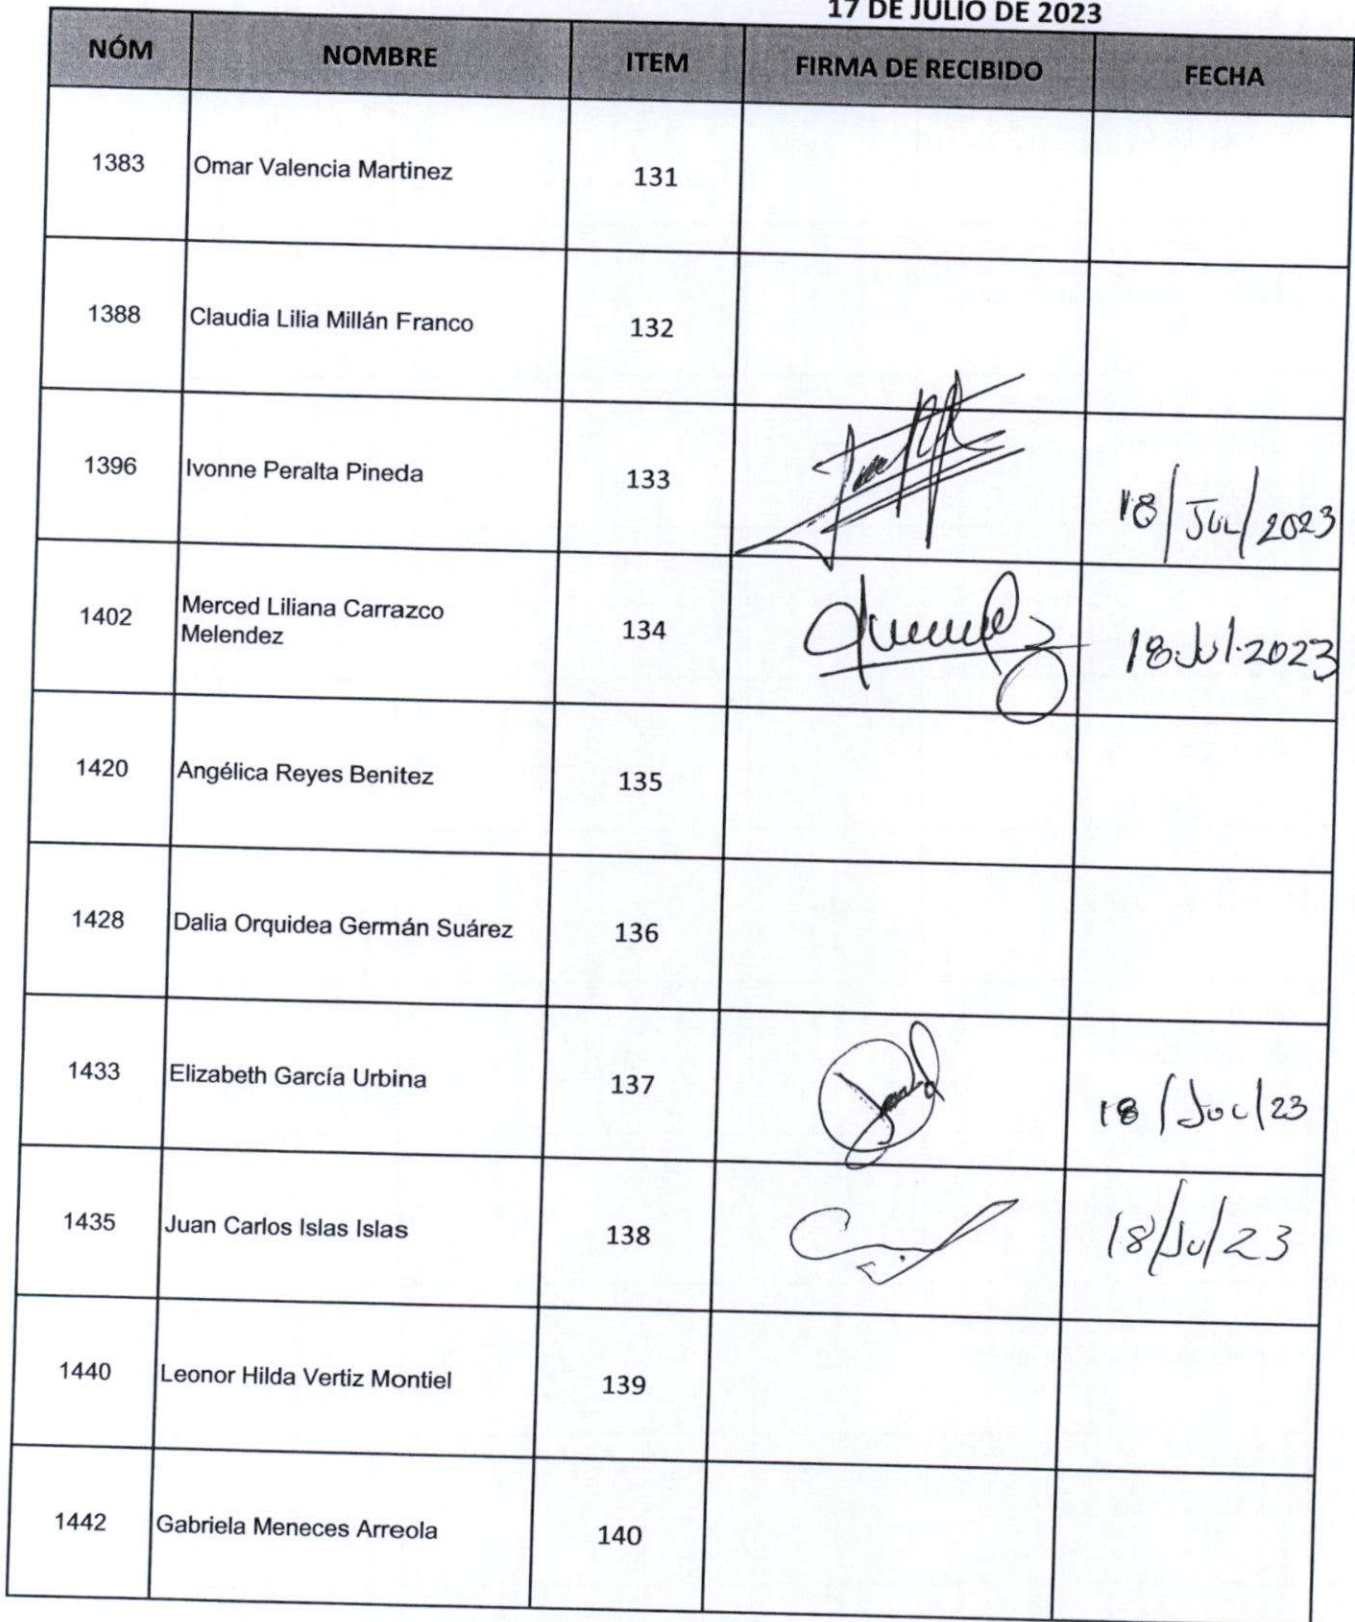 17 DE JULIO DE 2023
NÓM NOMBRE ITEM FIRMA DE RECIBIDO FECHA
1383 Omar Valencia Martinez 131
1388 Claudia Lilia Millán Franco 132
1396 Ivonne Peralta Pineda 133 18/JUL/2023
1402 Merced Liliana Carrazco
Melendez 134 18.Jul.2023
1420 Angélica Reyes Benitez 135
1428 Dalia Orquidea Germán Suárez 136
1433 Elizabeth García Urbina 137 18/JUL/23
1435 Juan Carlos Islas Islas 138 18/Jul/23
1440 Leonor Hilda Vertiz Montiel 139
1442 Gabriela Meneces Arreola 140